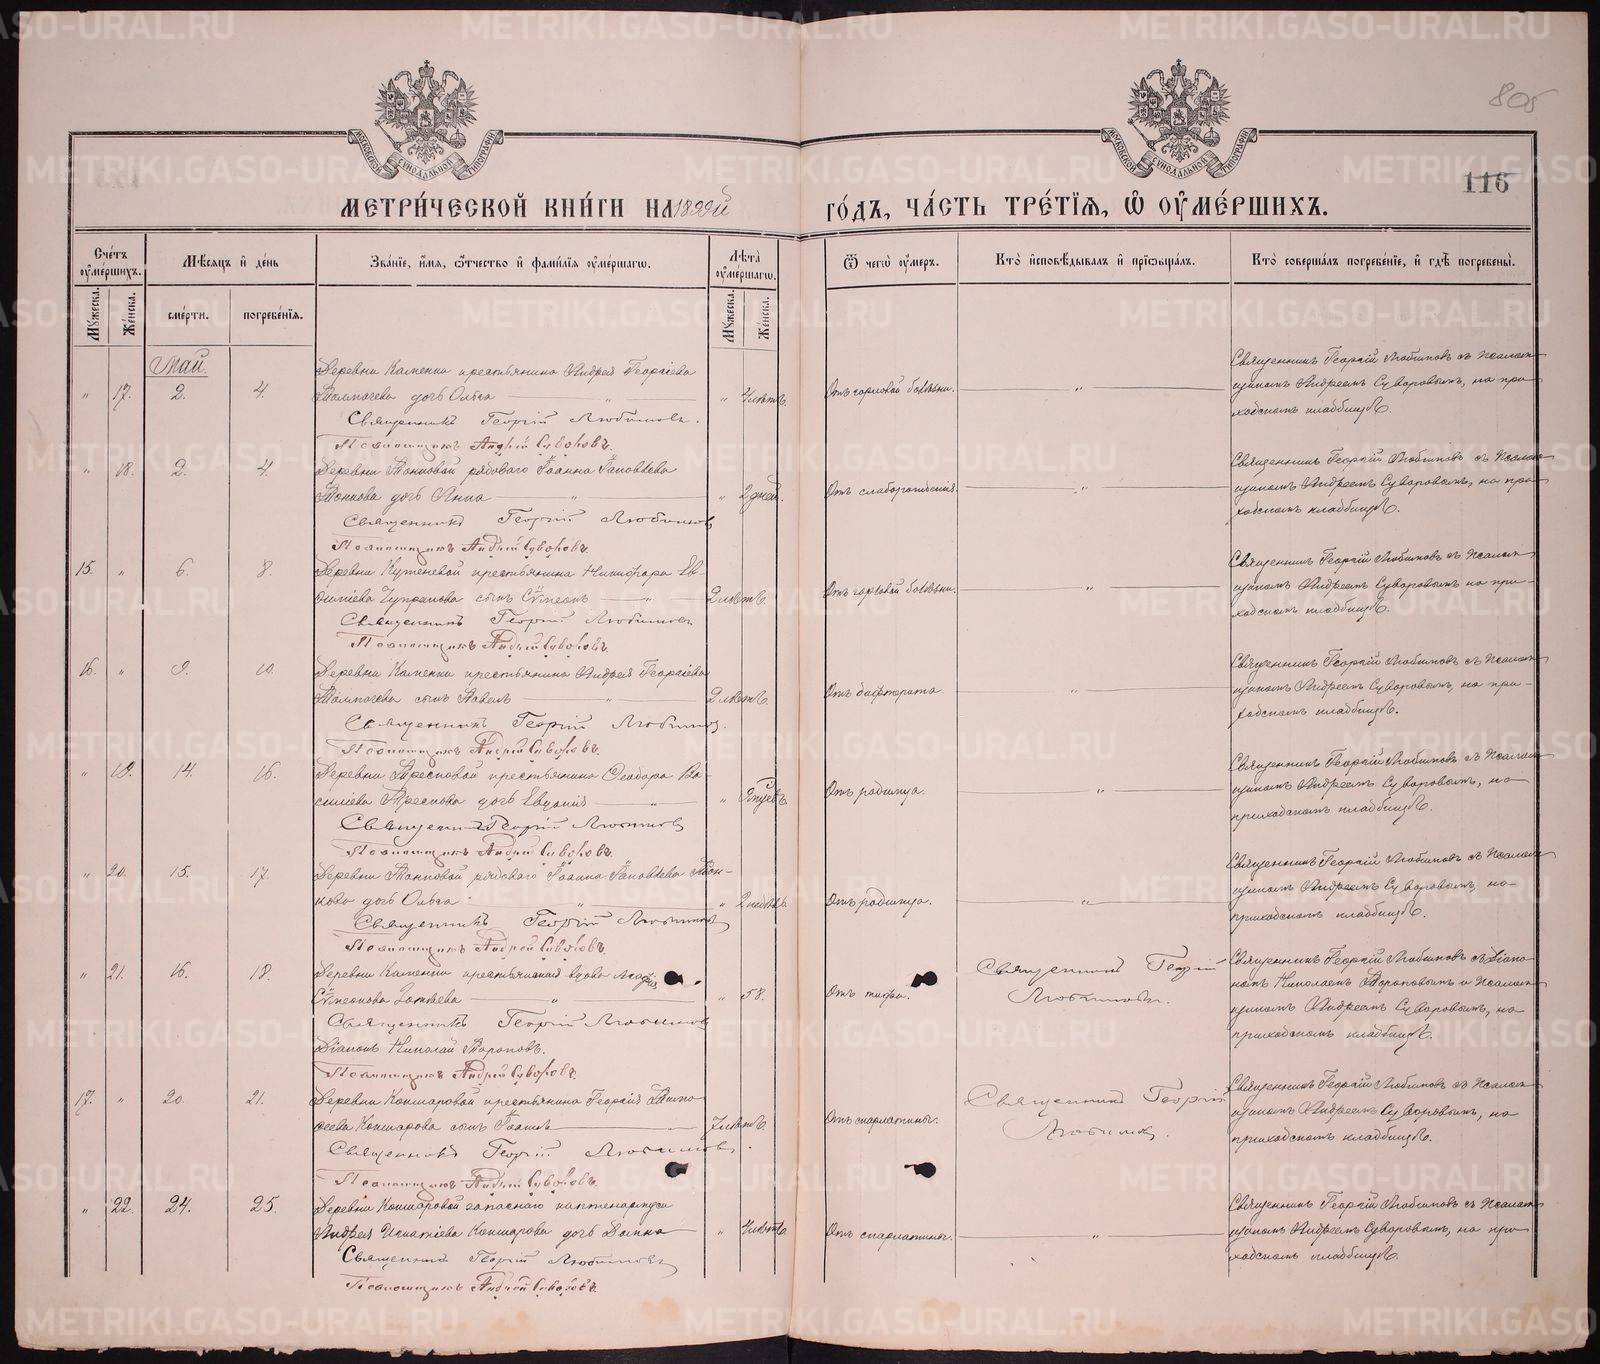 805
116
МЕТРИЧЕСКОЙ КНИГИ НА 1899й ГОДЪ, ЧАСТЬ ТРЕТІЯ, Ѿ ОУМЕРШИХЪ.
Счетъ оумершихъ.
Мѣсяцъ и день
Званіе, имя, ѿчество и фамилія оумершагѡ.
Лѣта оумершагѡ.
Ѿ чегѡ оумеръ.
Кто исповѣдывалъ и пріѡбщалъ.
Кто совершалъ погребеніе, и гдѣ погребены.
Мужеска.
Женска.
смерти.
погребенія.
Мужеска.
Женска.
Май.
" 17. 2. 4.
Деревни Каменки крестьянина Андрея Георгіева
дочь Ольга — " —
" 4 лѣтъ.
Отъ горловой болѣзни.
Священникъ Георгій Любимовъ съ Псалом-
щикомъ Андреемъ Суворовымъ, на при-
ходскомъ кладбищѣ.
Священникъ Георгій Любимовъ.
Псаломщикъ Андрей Суворовъ.
" 18. 2. 4.
Деревни Тонковой рядоваго Іоанна Іаковлева
Тонкова дочь Анна — " —
" 2 дней.
Отъ слаборожденія.
Священникъ Георгій Любимовъ съ Псалом-
щикомъ Андреемъ Суворовымъ, на при-
ходскомъ кладбищѣ.
Священникъ Георгій Любимовъ
Псаломщикъ Андрей Суворовъ.
15. " 6. 8.
Деревни крестьянина Никифора
сынъ Сѵмеонъ — " —
2 лѣтъ.
Отъ горловой болѣзни.
Священникъ Георгій Любимовъ съ Псалом-
щикомъ Андреемъ Суворовымъ на при-
ходскомъ кладбищѣ.
Священникъ Георгій Любимовъ
Псаломщикъ Андрей Суворовъ.
16. " 9. 10.
Деревни Каменки крестьянина Андрея Георгіева
сынъ Павелъ — " —
2 лѣтъ.
Отъ дифтерита
Священникъ Георгій Любимовъ съ Псалом-
щикомъ Андреемъ Суворовымъ, на при-
ходскомъ кладбищѣ.
Священникъ Георгій Любимовъ.
Псаломщикъ Андрей Суворовъ.
" 19. 14. 16.
Деревни крестьянина Ѳеодора Ва-
силіева дочь Евдокія — " —
Отъ родимца.
Священникъ Георгій Любимовъ съ Псалом-
щикомъ Андреемъ Суворовымъ, на
приходскомъ кладбищѣ.
Священникъ Георгій Любимовъ
Псаломщикъ Андрей Суворовъ.
" 20. 15. 17.
Деревни Тонковой рядоваго Іоанна Іаковлева Тон-
кова дочь Ольга — " —
" 2 недѣль.
Отъ родимца.
Священникъ Георгій Любимовъ съ Псалом-
щикомъ Андреемъ Суворовымъ, на
приходскомъ кладбищѣ.
Священникъ Георгій Любимовъ
Псаломщикъ Андрей Суворовъ.
" 21. 16. 18.
Деревни Каменки крестьянская вдова Марія
Сѵмеонова — " —
" 58.
Отъ тифа.
Священникъ Георгій
Любимовъ.
Священникъ Георгій Любимовъ съ Діако-
номъ Николаемъ Тороповымъ и Псалом-
щикомъ Андреемъ Суворовымъ, на
приходскомъ кладбищѣ.
Священникъ Георгій Любимовъ
Діаконъ Николай Тороповъ.
Псаломщикъ Андрей Суворовъ.
17. " 20. 21.
Деревни Кокшаровой крестьянина Георгія
Кокшарова сынъ Іоаннъ —
7 лѣтъ.
Отъ скарлатины.
Священникъ Георгій
Любимовъ.
Священникъ Георгій Любимовъ съ Псалом-
щикомъ Андреемъ Суворовымъ, на
приходскомъ кладбищѣ.
Священникъ Георгій Любимовъ.
Псаломщикъ Андрей Суворовъ.
" 22. 24. 25.
Деревни Кокшаровой запаснаго каптенармуса
Андрея Игнатіева Кокшарова дочь
" 4 лѣтъ.
Отъ скарлатины.
Священникъ Георгій Любимовъ съ Псалом-
щикомъ Андреемъ Суворовымъ, на при-
ходскомъ кладбищѣ.
Священникъ Георгій Любимовъ
Псаломщикъ Андрей Суворовъ.
METRIKI.GASO-URAL.RU